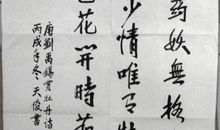 妖無格
少情唯有牡
色花開時節
唐劉禹錫賞牡丹詩
丙戌年冬天俊書